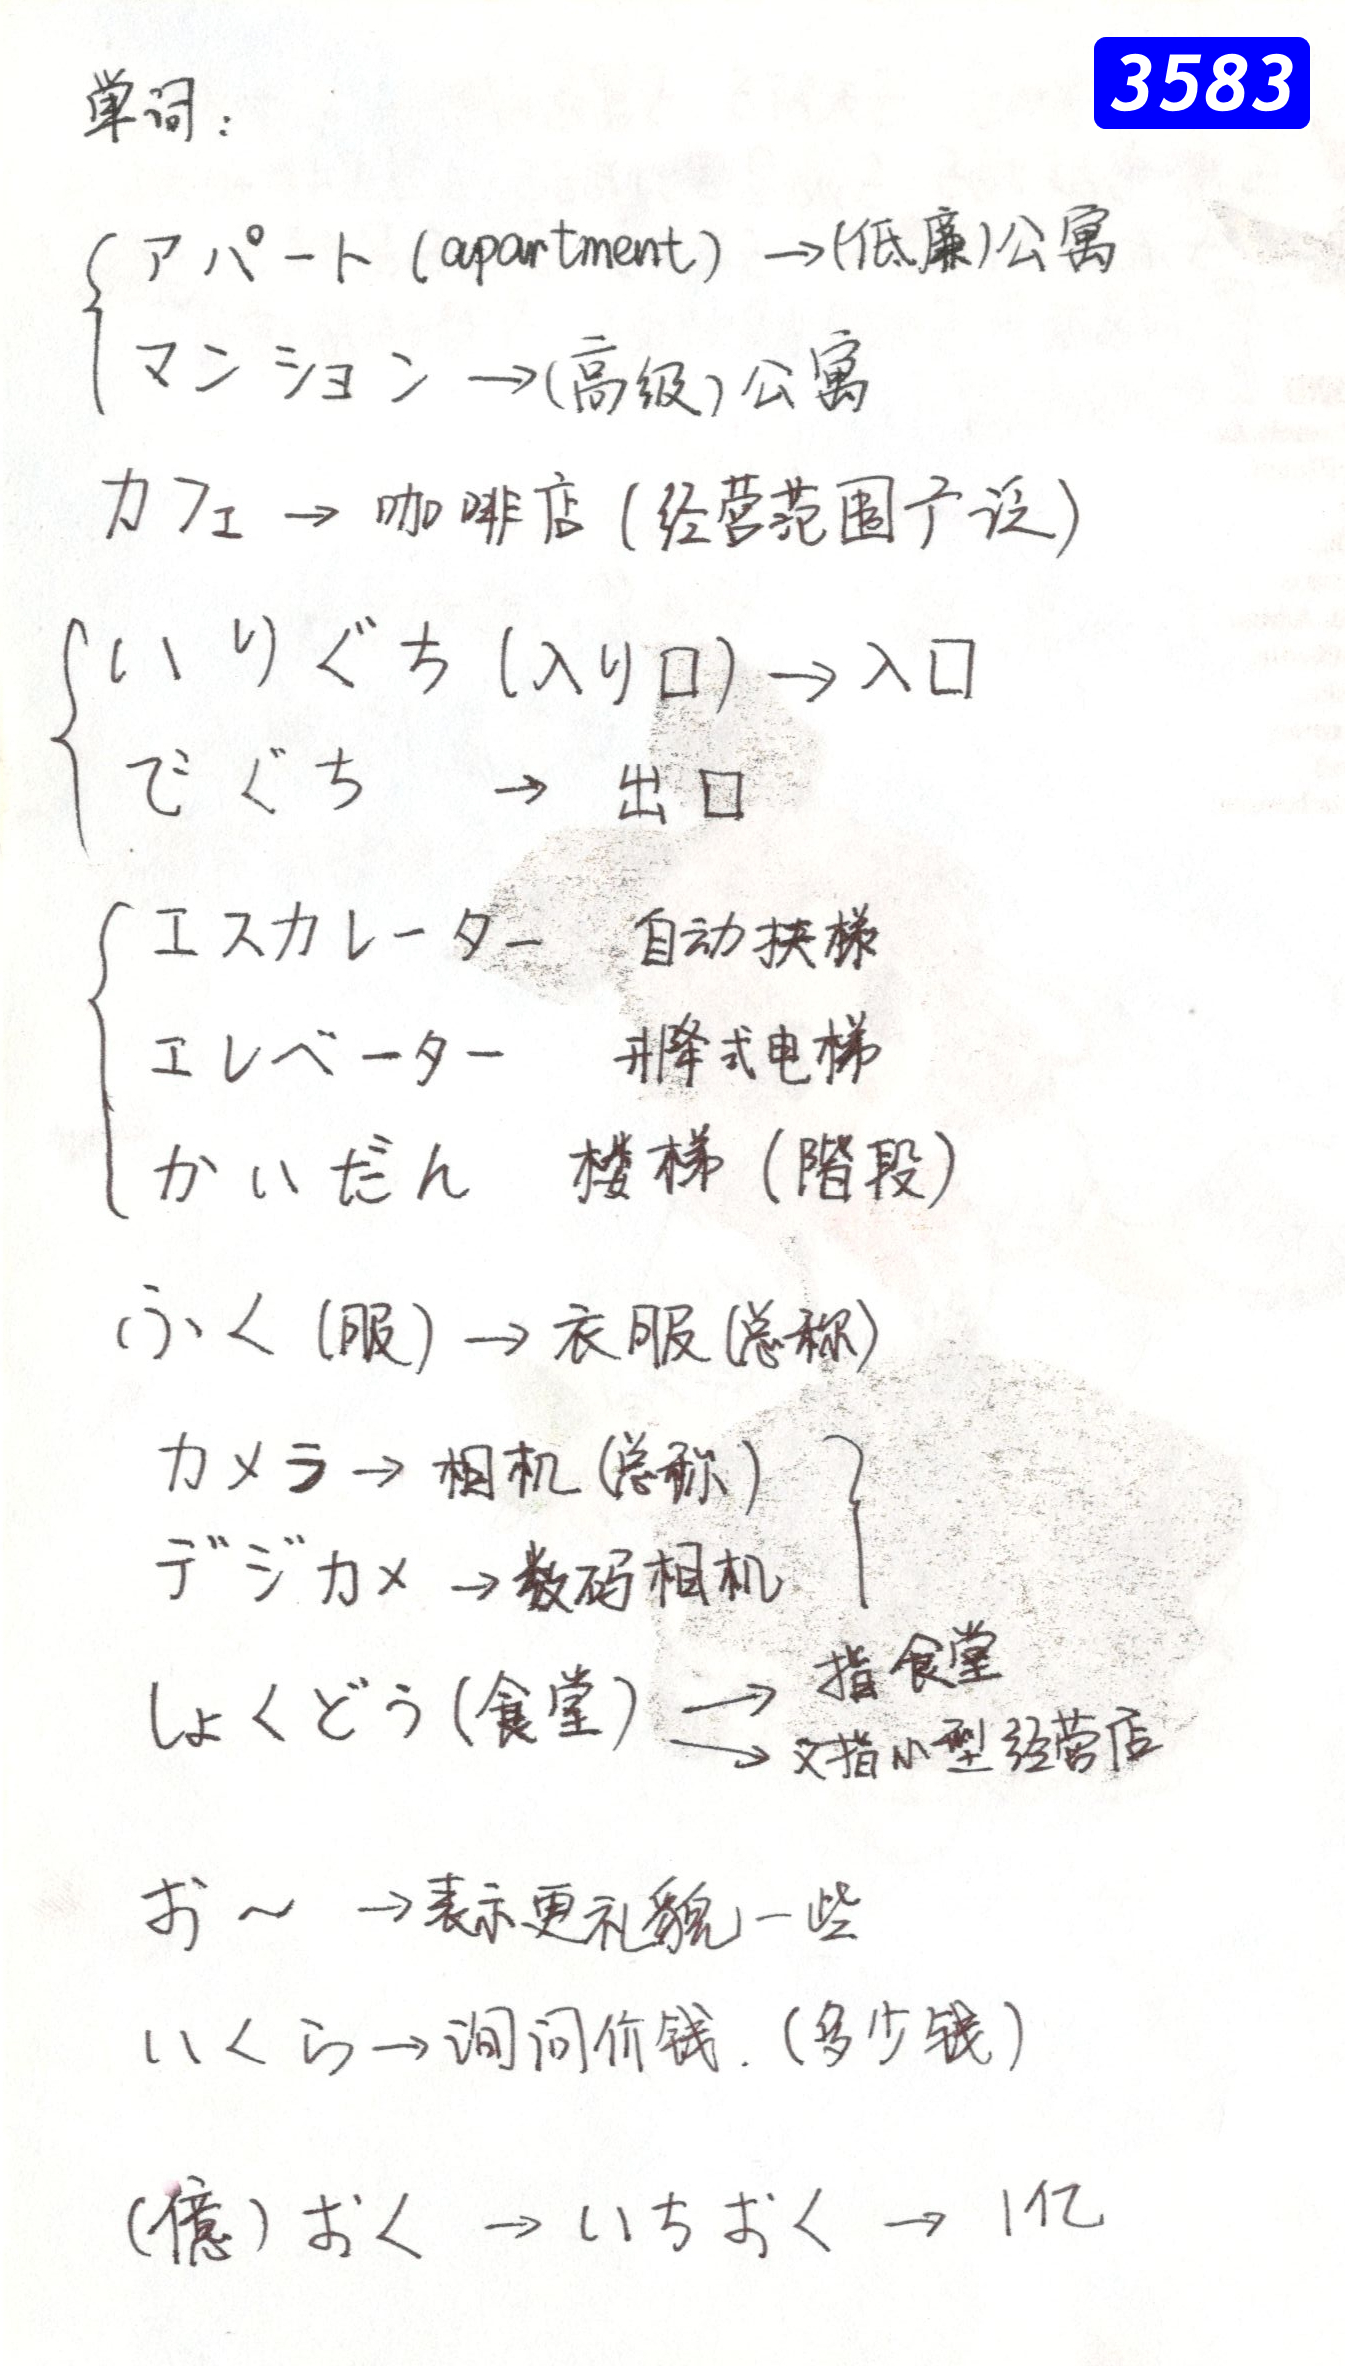 3583
単词:
アパート (apartment) →(低廉)公寓
マンション →(高级)公寓
カフェ → 咖啡店 (经营范围广泛)
いりぐち (入り口) → 入口
でぐち → 出口
エスカレーター 自动扶梯
エレベーター 升降式电梯
かいだん 楼梯 (階段)
ふく (服) → 衣服 (总称)
カメラ → 相机 (总称)
デジカメ → 数码相机
しょくどう (食堂) → 指食堂
→ 又指小型经营店
お～ → 表示更礼貌一些
いくら → 询问价钱. (多少钱)
(億) おく → いちおく → 1亿